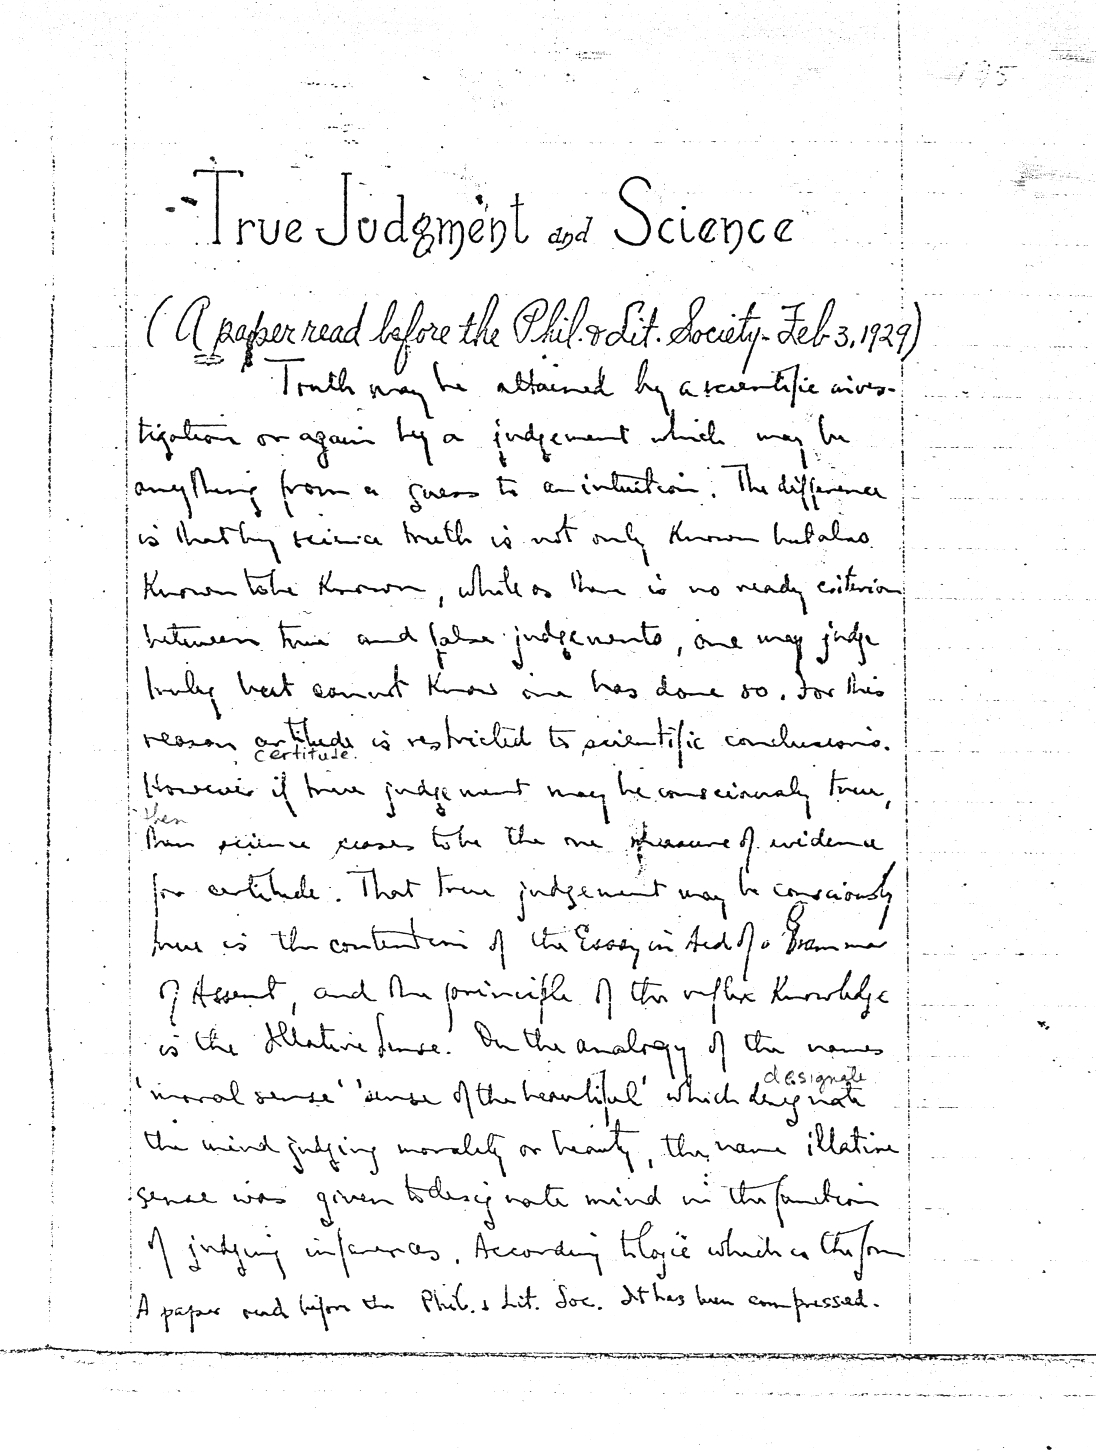 195
True Judgment and Science
(A paper read before the Phil. & Lit. Society - Feb 3, 1929)
Truth may be attained by a scientific inves-
tigation or again by a judgement which may be
anything from a guess to an intuition. The difference
is that by science truth is not only known but also
known to be known, while as there is no ready criterion
between true and false judgements, one may judge
truly but cannot know one has done so. For this
reason certitude is restricted to scientific conclusions.
certitude.
However if true judgement may be consciously true,
then
then science ceases to be the one measure of evidence
for certitude. That true judgement may be consciously
true is the contention of the Essay in Aid of a Grammar
of Assent, and the principle of this reflex knowledge
is the Illative Sense. On the analogy of the names
designate
'moral sense' 'sense of the beautiful' which designate
the mind judging morality or beauty, the name illative
sense was given to designate mind in the function
of judging inferences. According to logic which is the form
A paper read before the Phil. & Lit. Soc. It has been compressed.